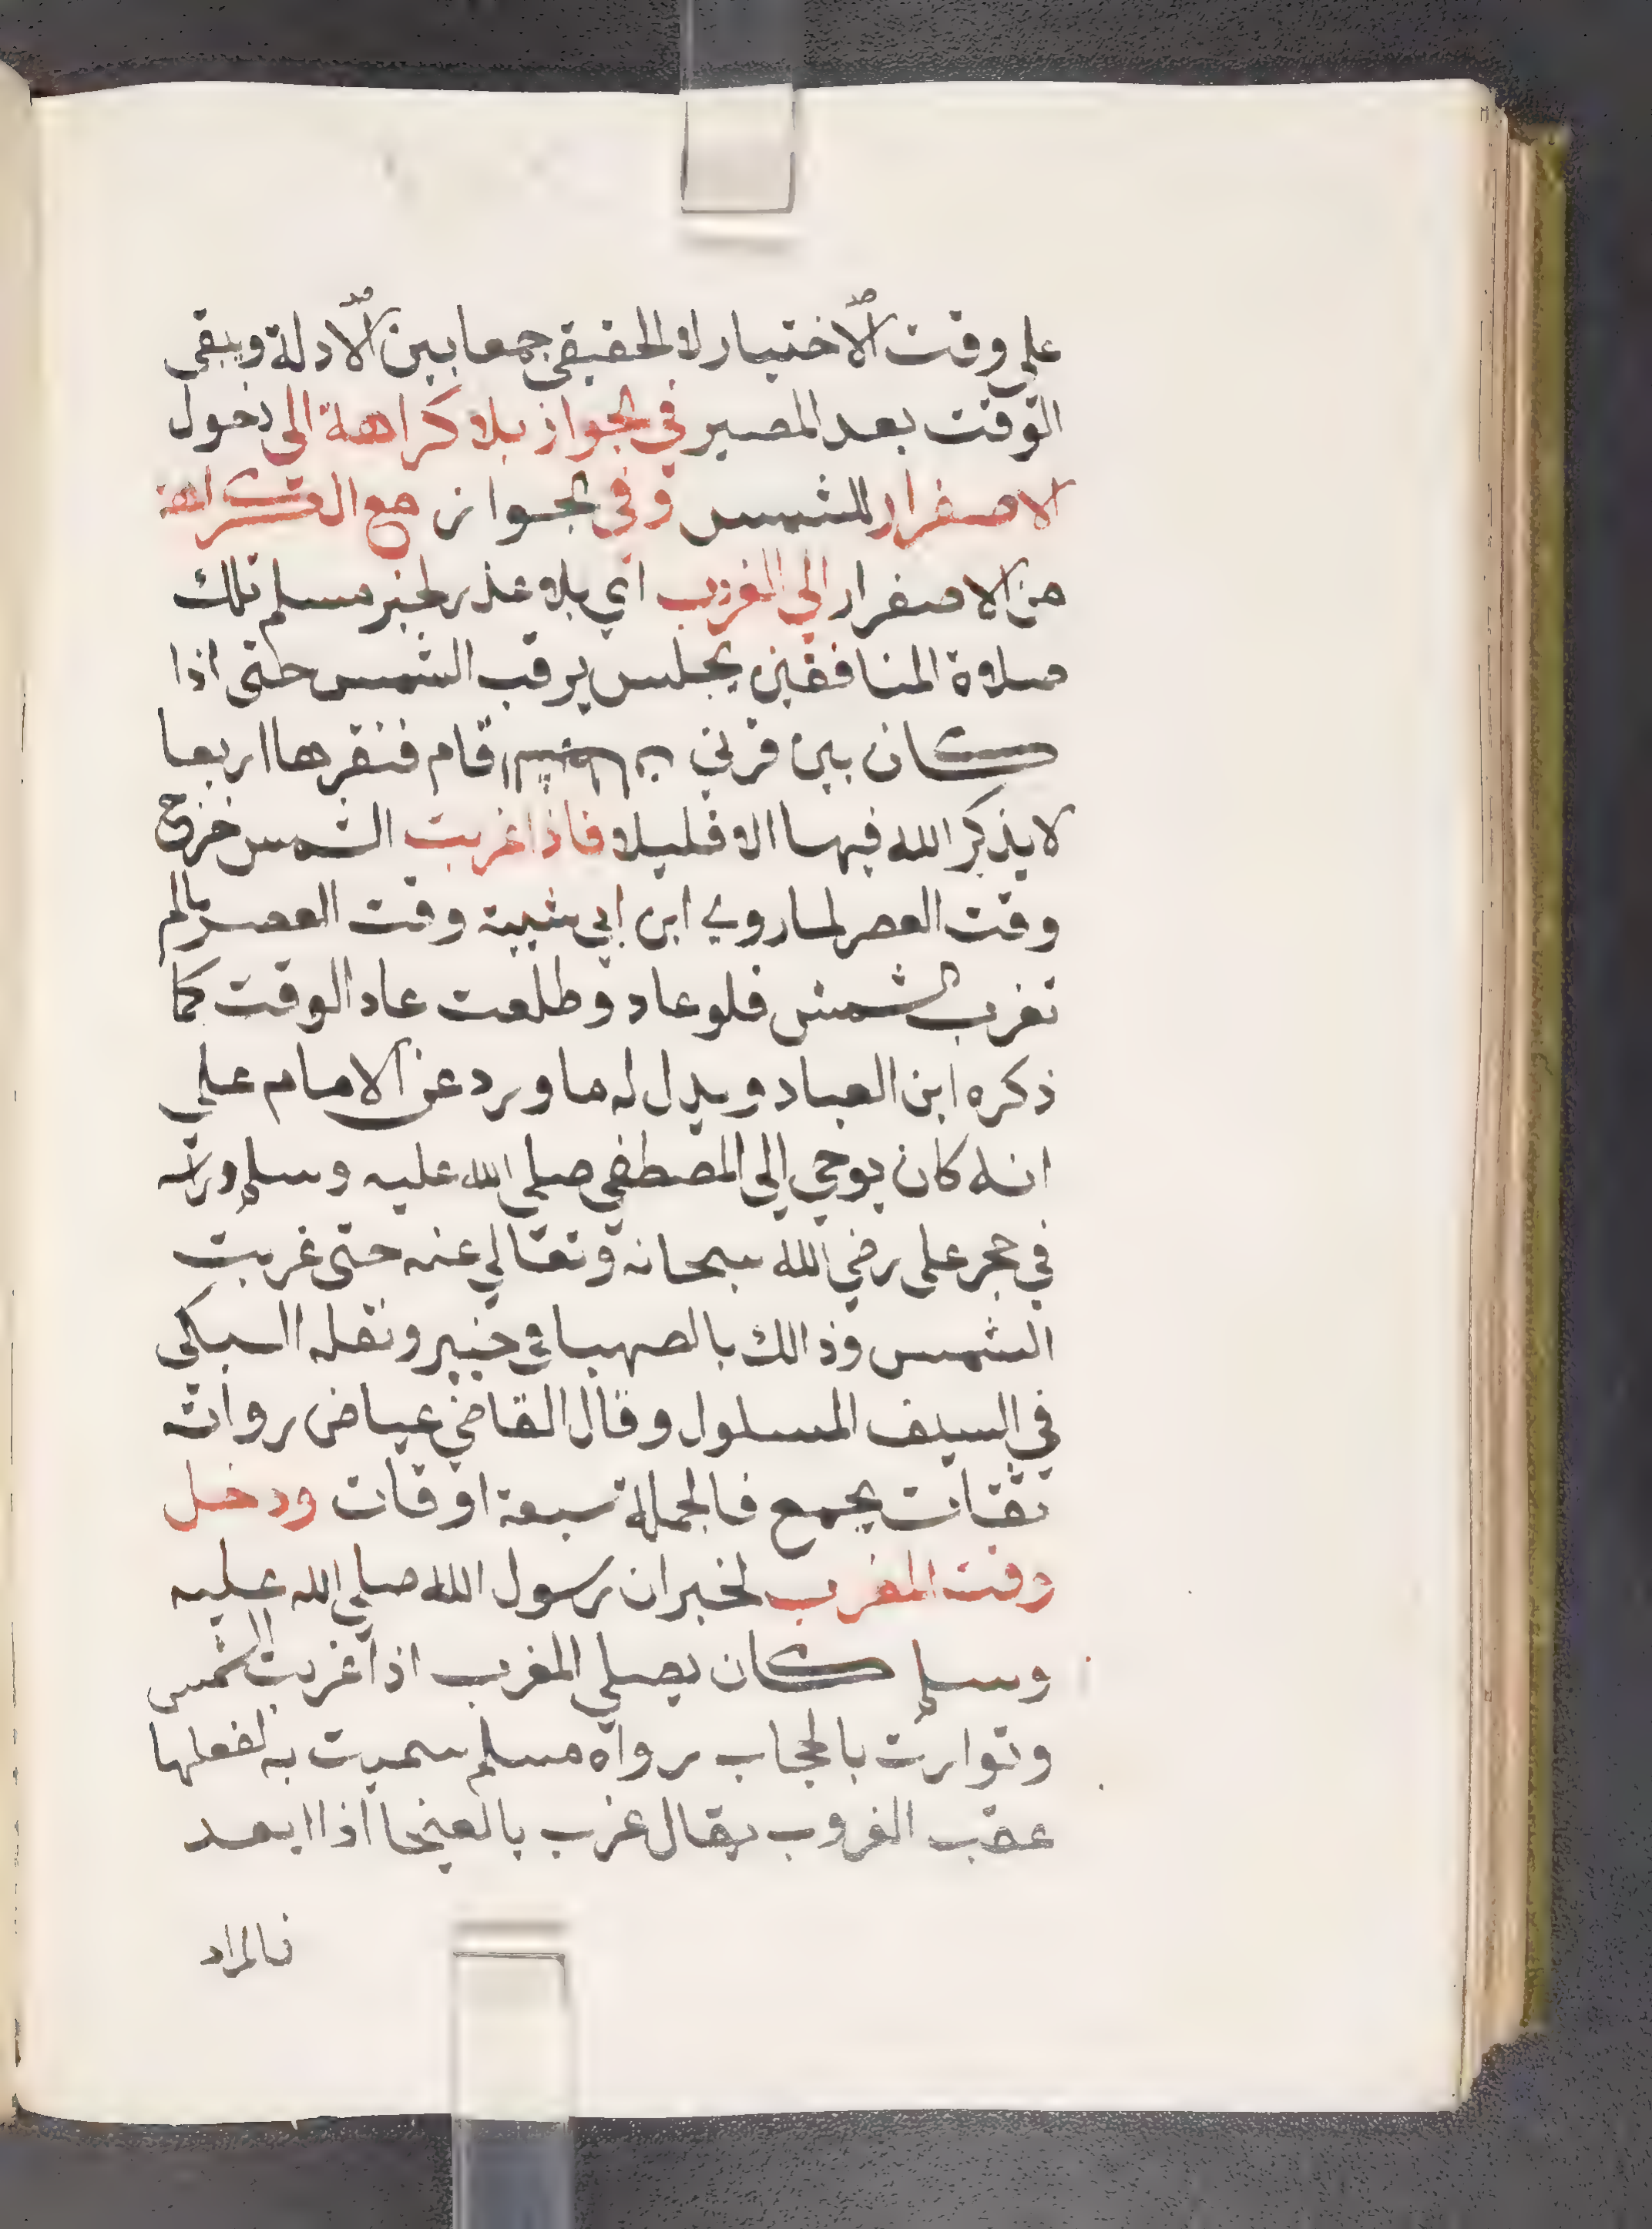 علي وقت الاختيار لا الحقيقي جمعا بين الادلة ويبقي
الوقت بعد المصير في الجواز بلا كراهة الى دخول
الاصفرار للشمس وفي الجواز مع الكراهة
من الاصفرار الي الغروب اي بلا عذر لخبر مسلم تلك
صلاة المنافقين يجلس يرقب الشمس حتى اذا
كان بين قرني قام فنقرها اربعا
لا يذكر الله فيها الا قليلا فاذا غربت الشمس خرج
وقت العصر لما روي ابن ابي شيبة وقت العصر مالم
تغرب الشمس فلو عاد وطلعت عاد الوقت كما
ذكره ابن العماد ويدل له ما ورد عن الامام علي
انه كان يوحي الي المصطفي صلي الله عليه وسلم وراسه
في حجر علي رضي الله سبحانه وتعالي عنه حتى غربت
الشمس وذالك بالصهبا في خيبر ونقله السبكي
في السيف المسلول وقال القاضي عياض رواته
ثقات يجمع فالجملة سبعة اوقات ودخل
وقت المغرب لخبر ان رسول الله صلي الله عليه
وسلم كان يصلي المغرب اذا غربت الشمس
وتوارت بالحجاب رواه مسلم سميت به لفعلها
عقب الغروب يقال غرب اذا ابعد
فالمراد